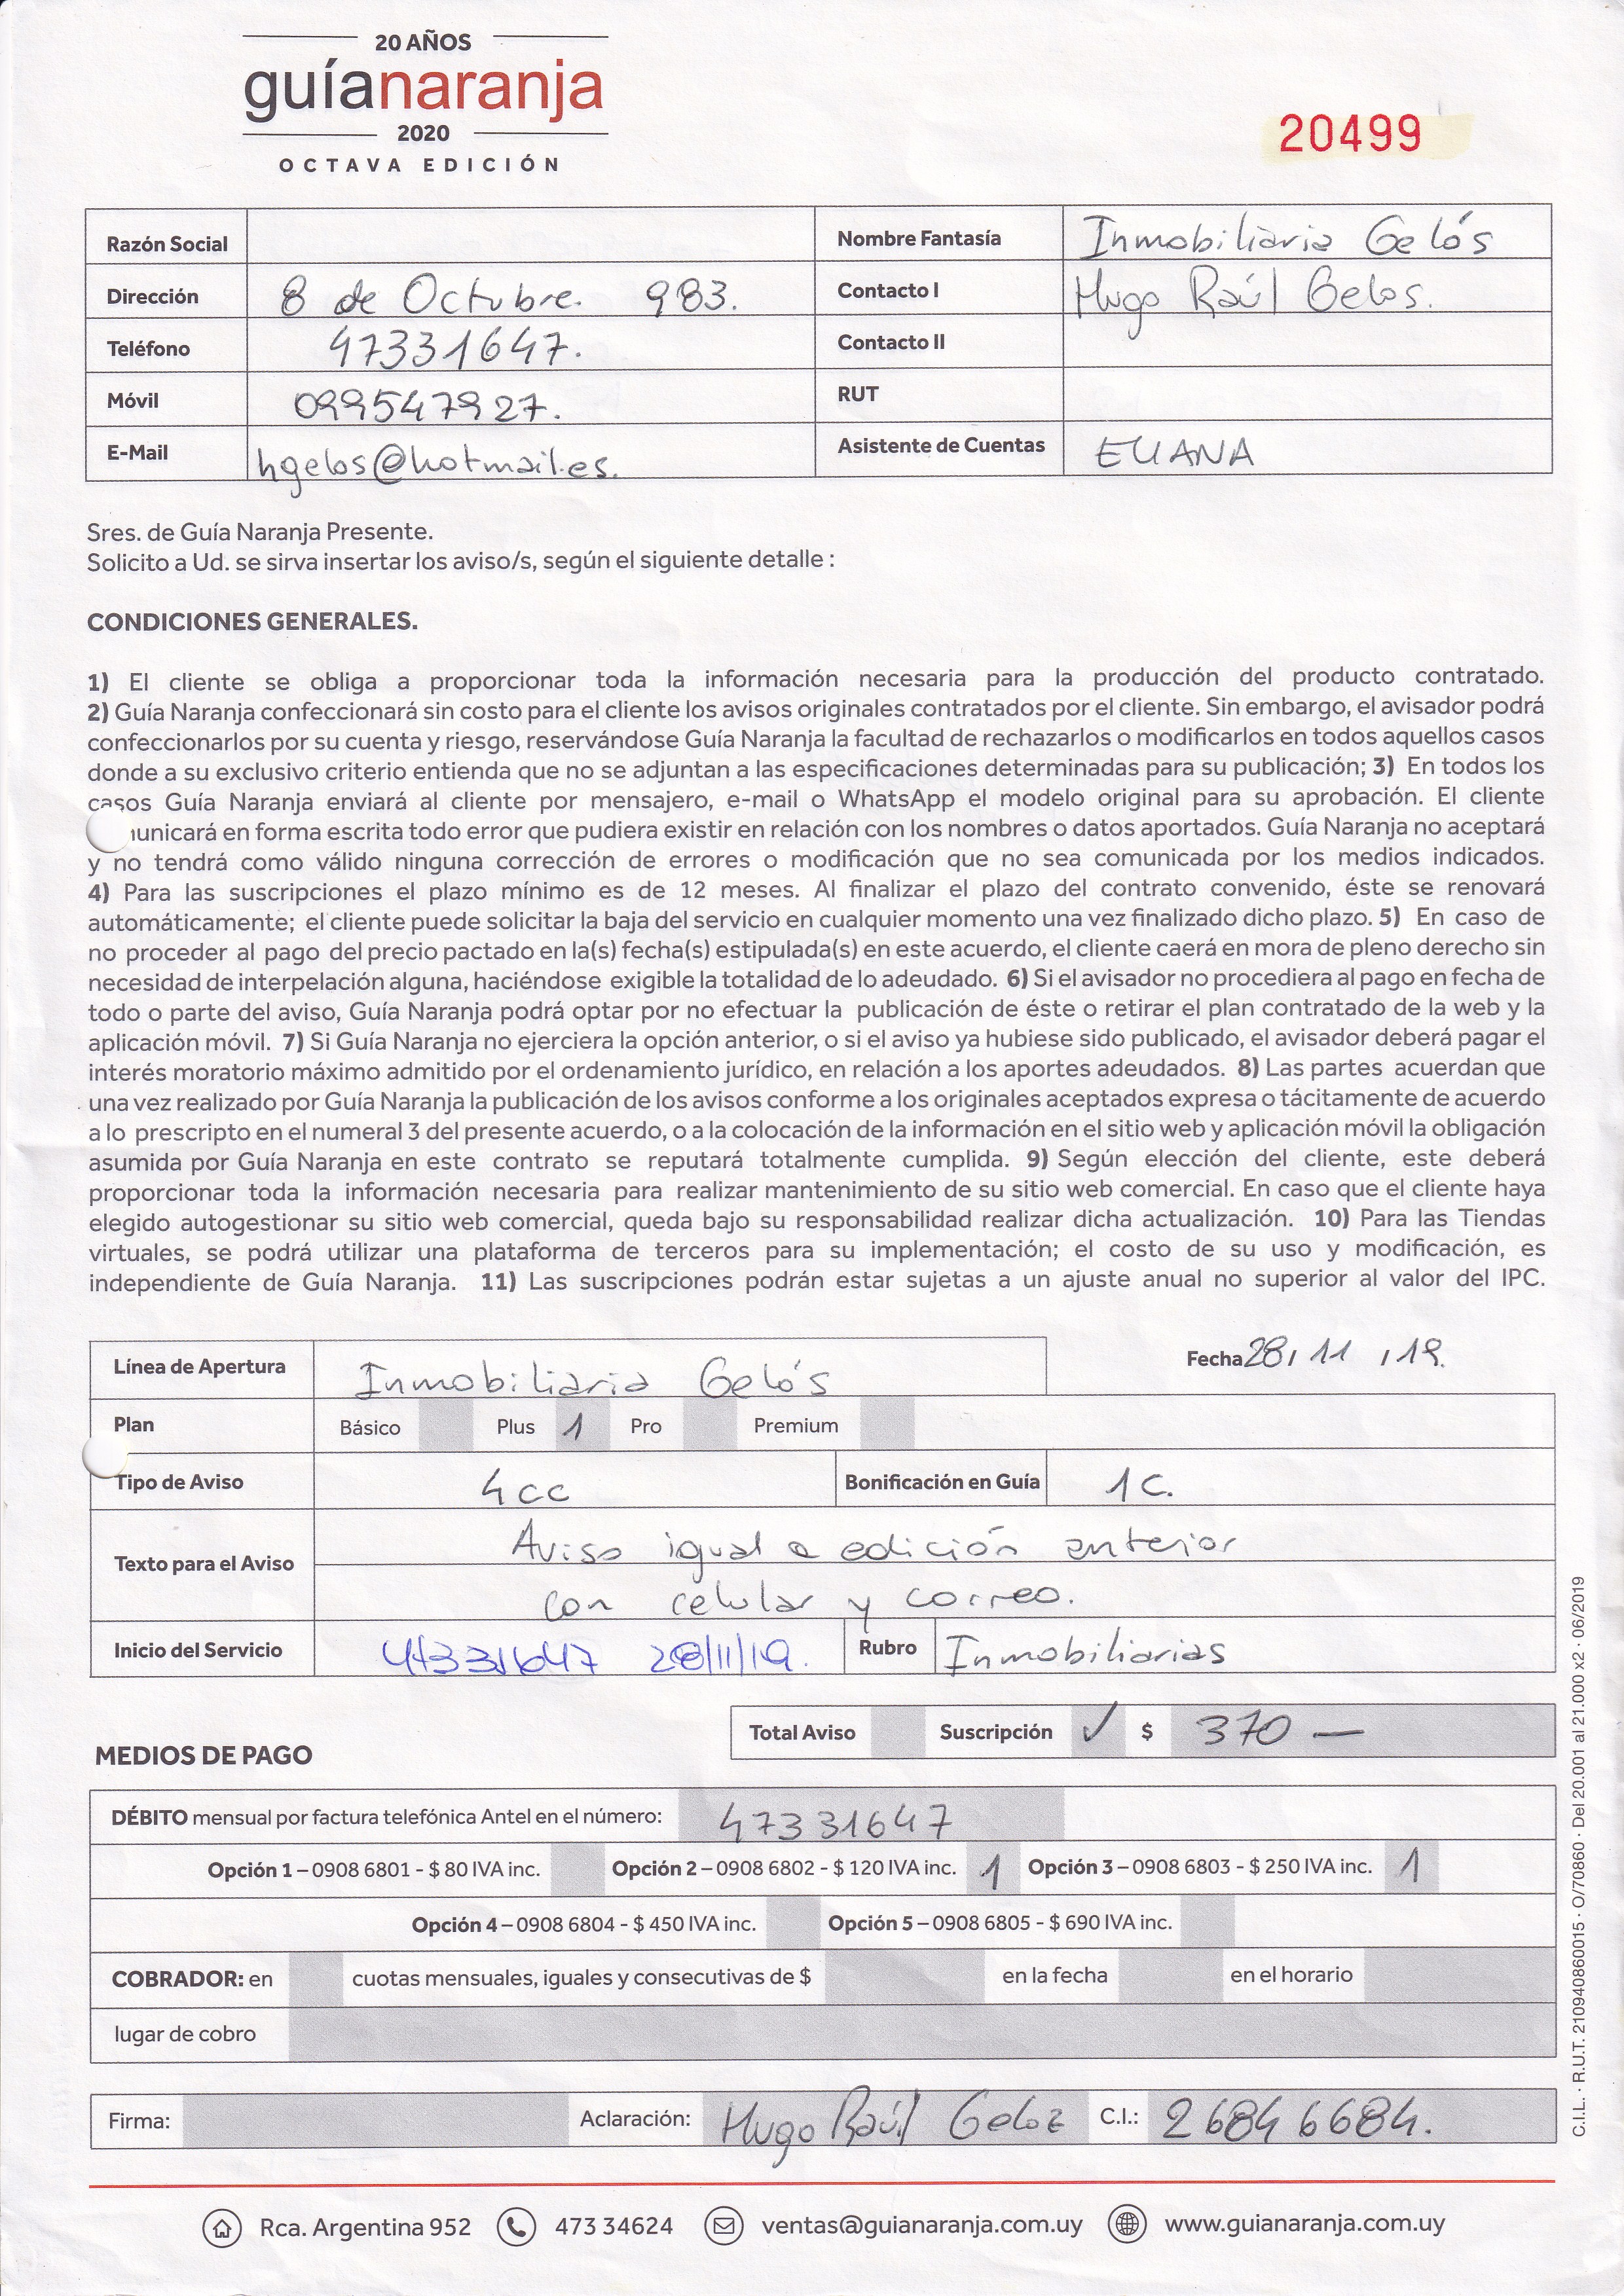 20 AÑOS
guíanaranja
2020
OCTAVA EDICIÓN
20499
Razón Social
Nombre Fantasía Inmobiliaria Gelós
Dirección 8 de Octubre. 983.
Contacto I Hugo Raúl Gelos.
Teléfono 47331647.
Contacto II
Móvil 099547927.
RUT
E-Mail hgelos@hotmail.es.
Asistente de Cuentas ELIANA
Sres. de Guía Naranja Presente.
Solicito a Ud. se sirva insertar los aviso/s, según el siguiente detalle :
CONDICIONES GENERALES.
1) El cliente se obliga a proporcionar toda la información necesaria para la producción del producto contratado.
2) Guía Naranja confeccionará sin costo para el cliente los avisos originales contratados por el cliente. Sin embargo, el avisador podrá
confeccionarlos por su cuenta y riesgo, reservándose Guía Naranja la facultad de rechazarlos o modificarlos en todos aquellos casos
donde a su exclusivo criterio entienda que no se adjuntan a las especificaciones determinadas para su publicación; 3) En todos los
casos Guía Naranja enviará al cliente por mensajero, e-mail o WhatsApp el modelo original para su aprobación. El cliente
unicará en forma escrita todo error que pudiera existir en relación con los nombres o datos aportados. Guía Naranja no aceptará
y no tendrá como válido ninguna corrección de errores o modificación que no sea comunicada por los medios indicados.
4) Para las suscripciones el plazo mínimo es de 12 meses. Al finalizar el plazo del contrato convenido, éste se renovará
automáticamente; el cliente puede solicitar la baja del servicio en cualquier momento una vez finalizado dicho plazo. 5) En caso de
no proceder al pago del precio pactado en la(s) fecha(s) estipulada(s) en este acuerdo, el cliente caerá en mora de pleno derecho sin
necesidad de interpelación alguna, haciéndose exigible la totalidad de lo adeudado. 6) Si el avisador no procediera al pago en fecha de
todo o parte del aviso, Guía Naranja podrá optar por no efectuar la publicación de éste o retirar el plan contratado de la web y la
aplicación móvil. 7) Si Guía Naranja no ejerciera la opción anterior, o si el aviso ya hubiese sido publicado, el avisador deberá pagar el
interés moratorio máximo admitido por el ordenamiento jurídico, en relación a los aportes adeudados. 8) Las partes acuerdan que
una vez realizado por Guía Naranja la publicación de los avisos conforme a los originales aceptados expresa o tácitamente de acuerdo
a lo prescripto en el numeral 3 del presente acuerdo, o a la colocación de la información en el sitio web y aplicación móvil la obligación
asumida por Guía Naranja en este contrato se reputará totalmente cumplida. 9) Según elección del cliente, este deberá
proporcionar toda la información necesaria para realizar mantenimiento de su sitio web comercial. En caso que el cliente haya
elegido autogestionar su sitio web comercial, queda bajo su responsabilidad realizar dicha actualización. 10) Para las Tiendas
virtuales, se podrá utilizar una plataforma de terceros para su implementación; el costo de su uso y modificación, es
independiente de Guía Naranja. 11) Las suscripciones podrán estar sujetas a un ajuste anual no superior al valor del IPC.
Línea de Apertura Inmobiliaria Gelós
Fecha 28/ 11 /19.
Plan Básico Plus 1 Pro Premium
Tipo de Aviso 4cc Bonificación en Guía 1C.
Texto para el Aviso Aviso igual a edición anterior
con celular y correo.
Inicio del Servicio 47331647 28/11/19. Rubro Inmobiliarias
Total Aviso Suscripción ✓ $ 370 —
MEDIOS DE PAGO
DÉBITO mensual por factura telefónica Antel en el número: 47331647
Opción 1 – 0908 6801 - $ 80 IVA inc. Opción 2 – 0908 6802 - $ 120 IVA inc. 1 Opción 3 – 0908 6803 - $ 250 IVA inc. 1
Opción 4 – 0908 6804 - $ 450 IVA inc. Opción 5 – 0908 6805 - $ 690 IVA inc.
COBRADOR: en cuotas mensuales, iguales y consecutivas de $ en la fecha en el horario
lugar de cobro
Firma: Aclaración: Hugo Raúl Geloz C.I.: 26846684.
C.I.L. · R.U.T. 210940860015 · O/70860 · Del 20.001 al 21.000 x2 · 06/2019
Rca. Argentina 952 473 34624 ventas@guianaranja.com.uy www.guianaranja.com.uy